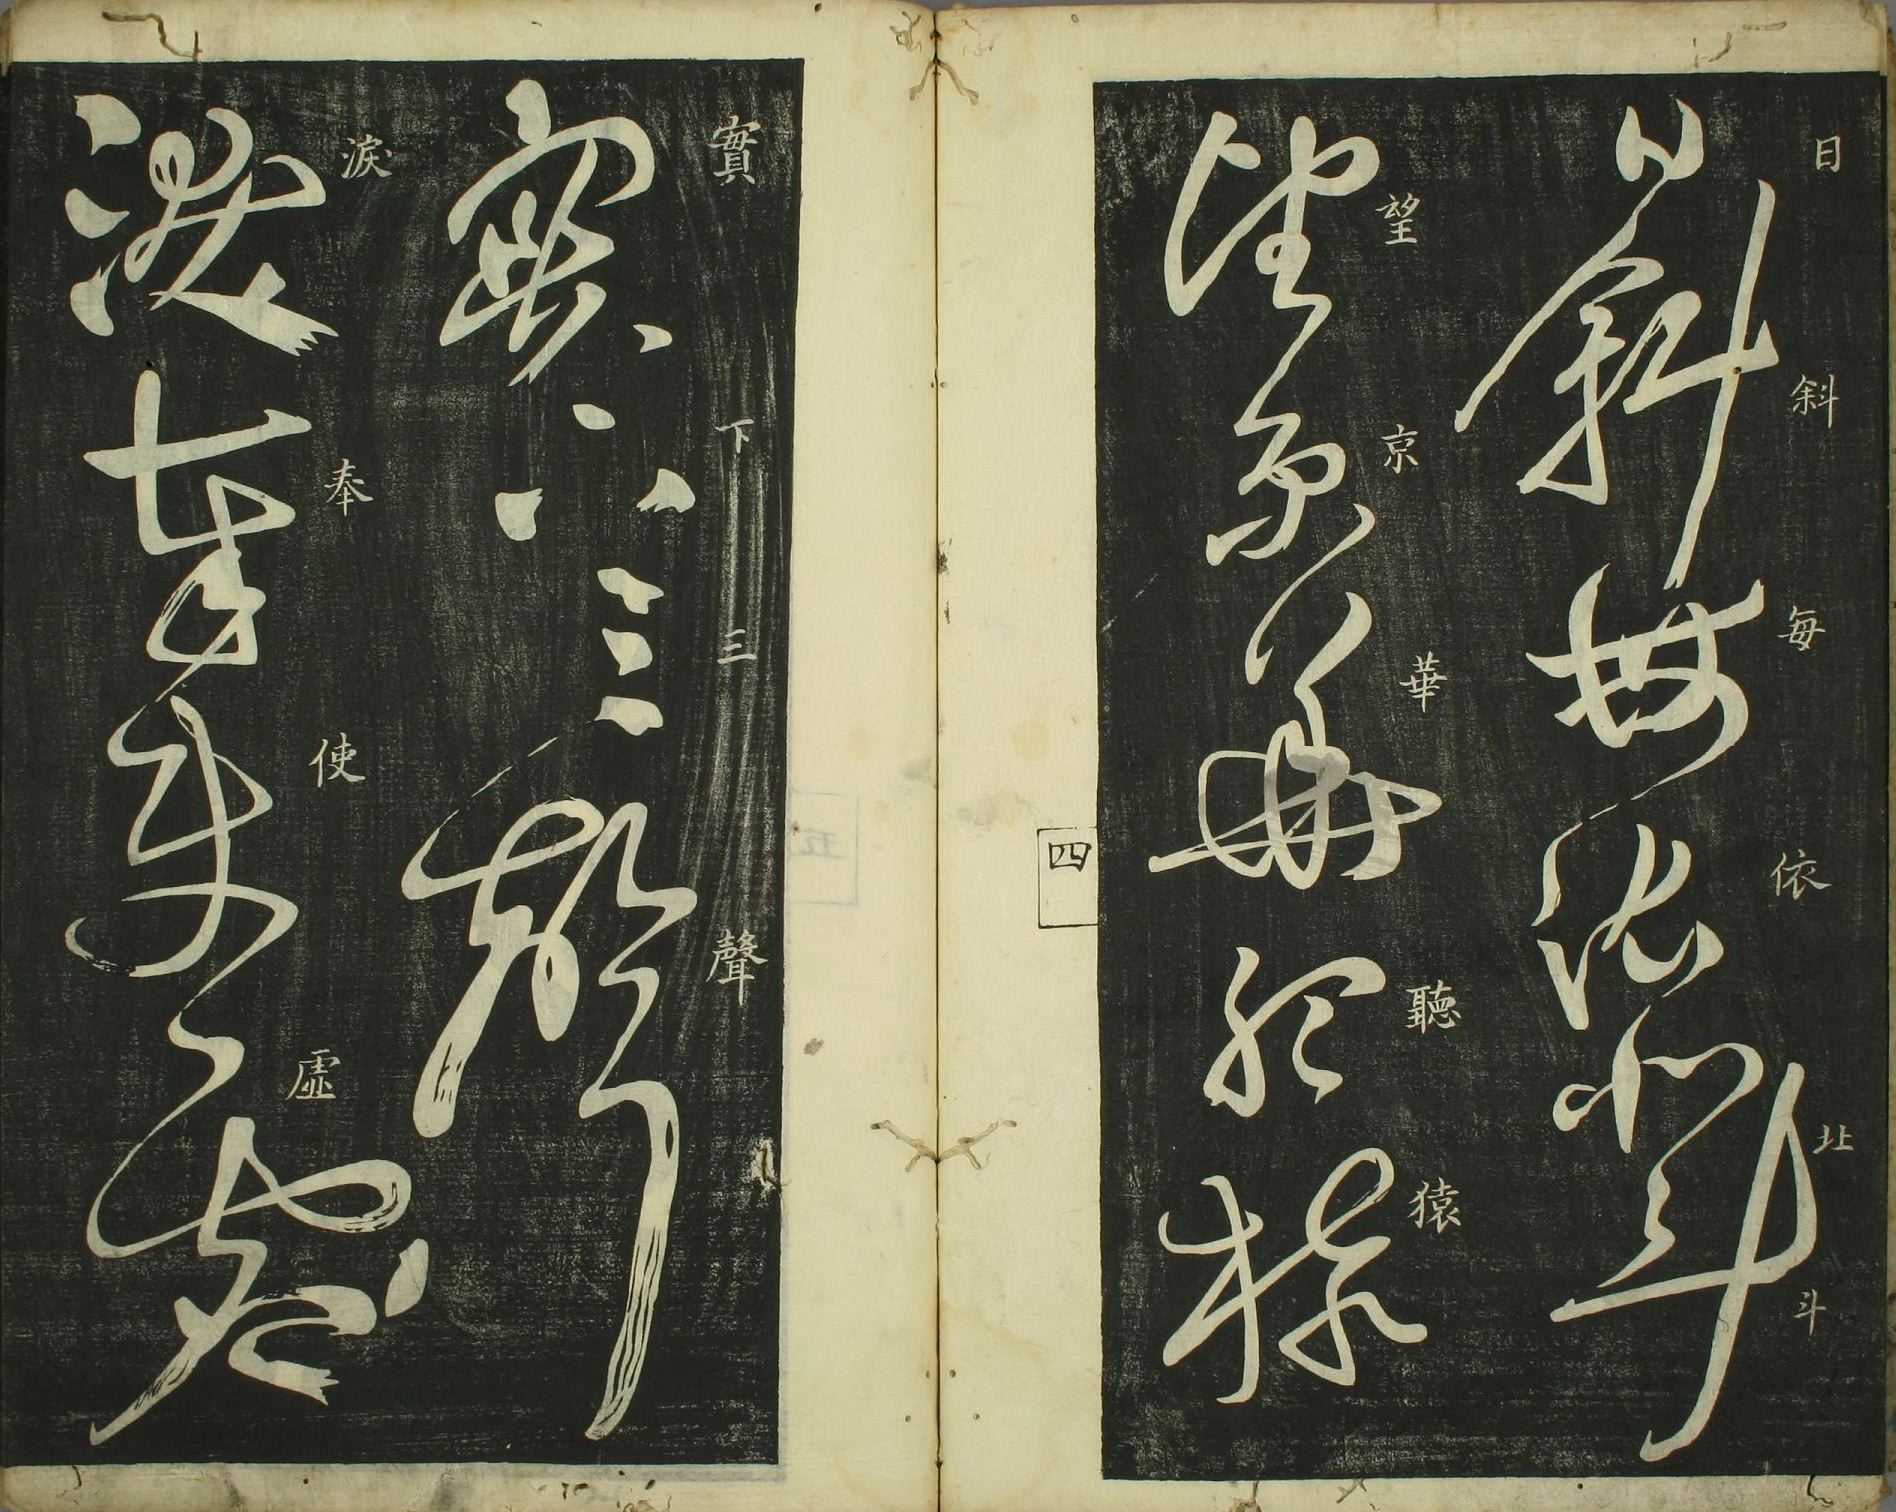 日斜每依北斗
望京華聽猿
實下三聲
淚奉使虛
四